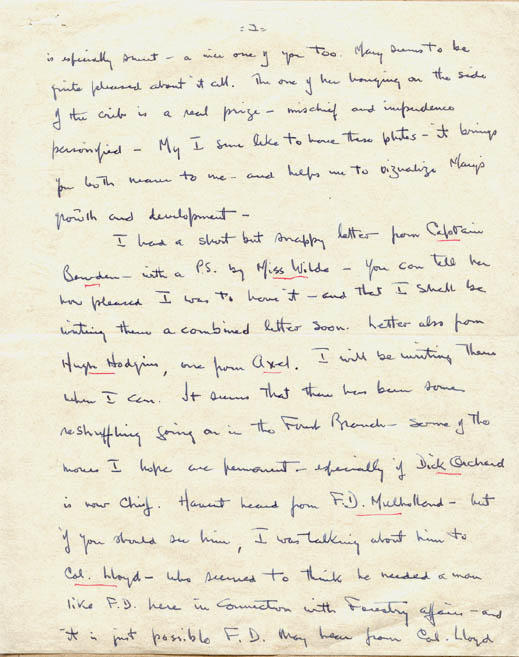 = 2 =
is especially sweet - a nice one of you too. Mary seems to be
quite pleased about it all. The one of her hanging on the side
of the crib is a real prize - mischief and impudence
personified - My I sure like to have these photos - it brings
you both nearer to me - and helps me to vizualize Mary's
growth and development -
I had a short but snappy letter from Captain
Bowden - with a P.S. by Miss Wilde - You can tell her
how pleased I was to have it - and that I shall be
writing them a combined letter soon. Letter also from
Hugh Hodgins, one from Axel. I will be writing them
when I can. It seems that there has been some
reshuffling going on in the Forest Branch - some of the
moves I hope are permanent - especially if Dick Orchard
is now Chief. Havent heard from F.D. Mulholland - but
if you should see him, I was talking about him to
Col. Lloyd - who seemed to think he needed a man
like F.D. here in connection with Forestry affairs - and
it is just possible F.D. may hear from Col. Lloyd